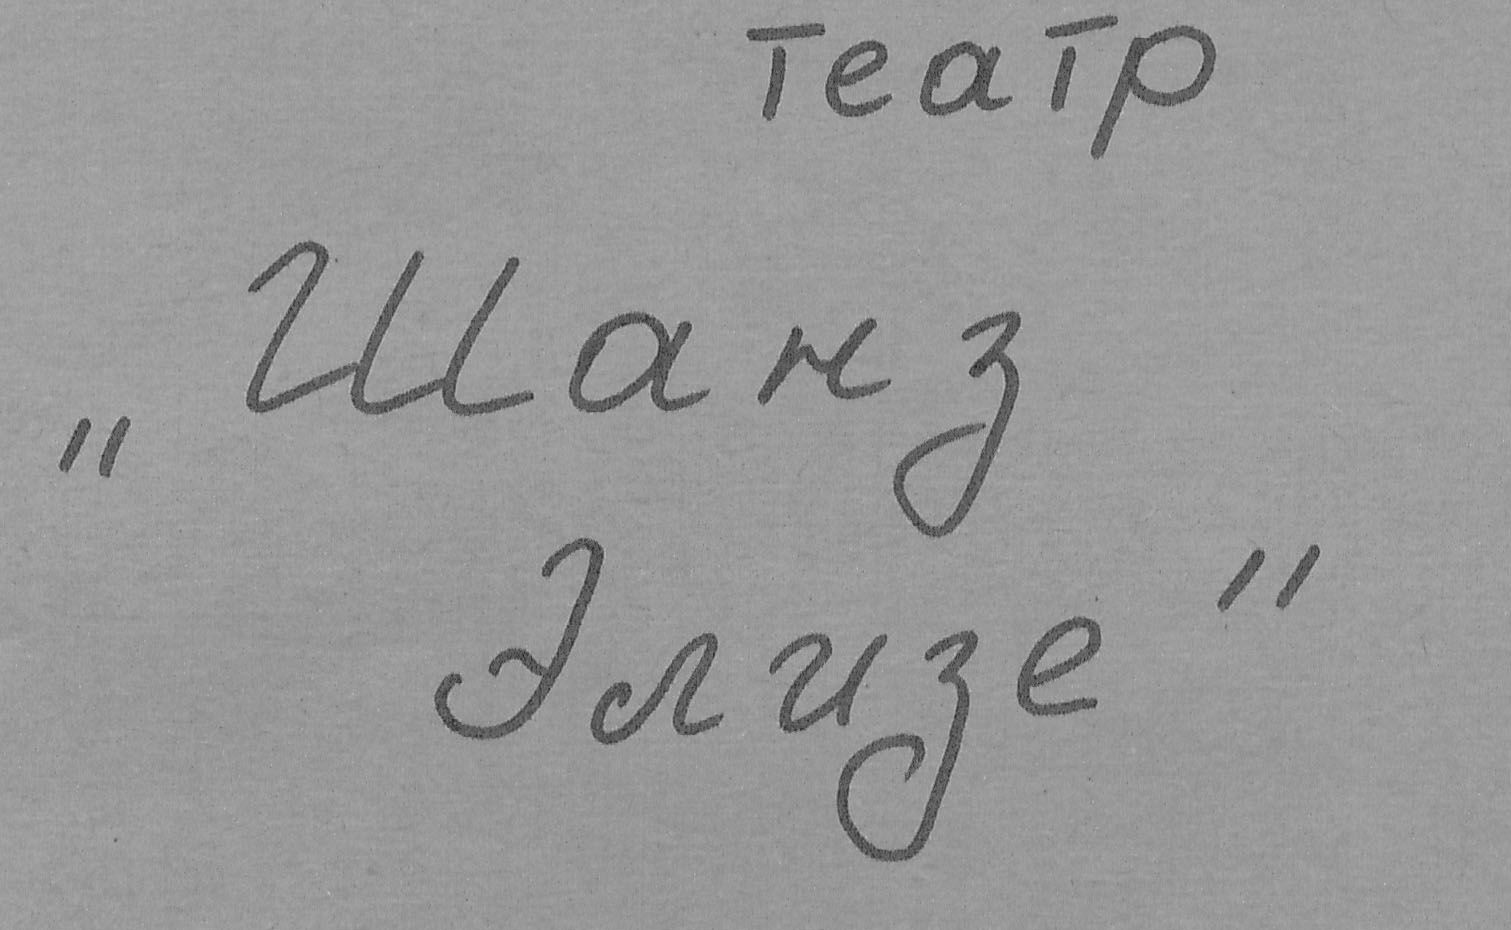 театр
„Шанз
Элизе"